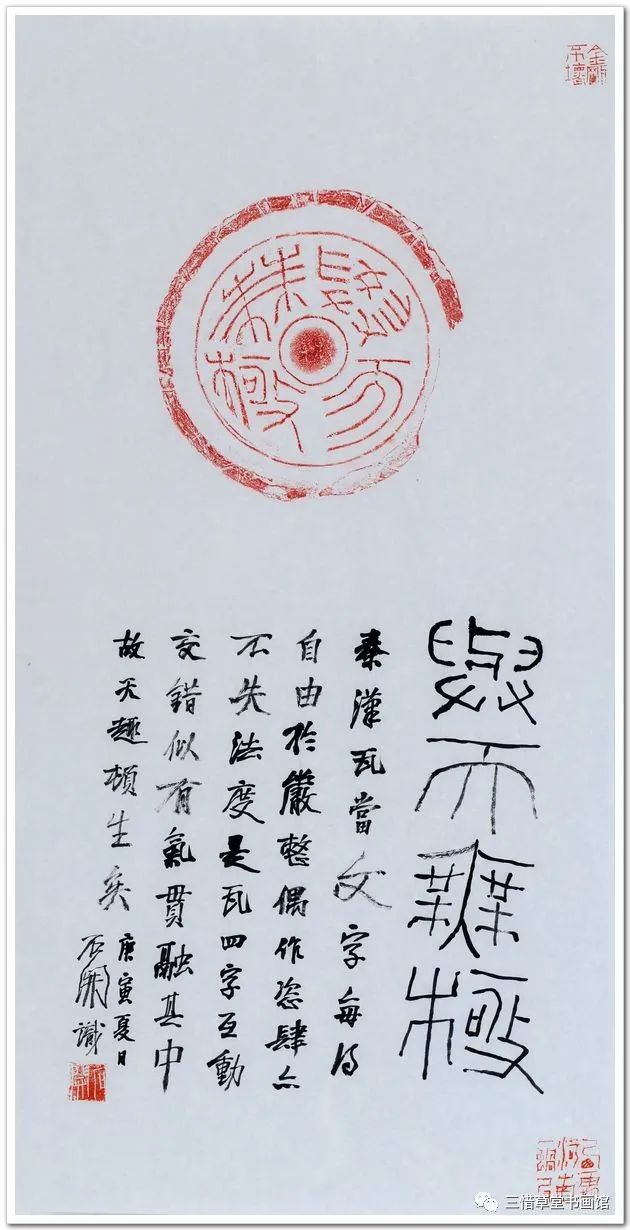 金剛不壞
與天無極
與天無極
秦漢瓦當文字每得
自由於嚴整偶作恣肆亦
不失法度是瓦四字互動
交錯似有氣貫融其中
故天趣頓生矣
庚寅夏日
石開識
石開
三惜草堂书画馆